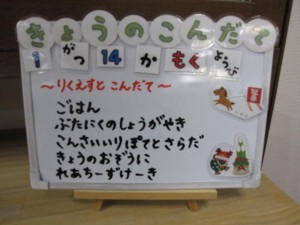 きょうのこんだて
1 がつ 14 か もく ようび
～りくえすと こんだて～
ごはん
ぶたにくのしょうがやき
こんさいいりぽてとさらだ
きょうのおぞうに
れあちーずけーき